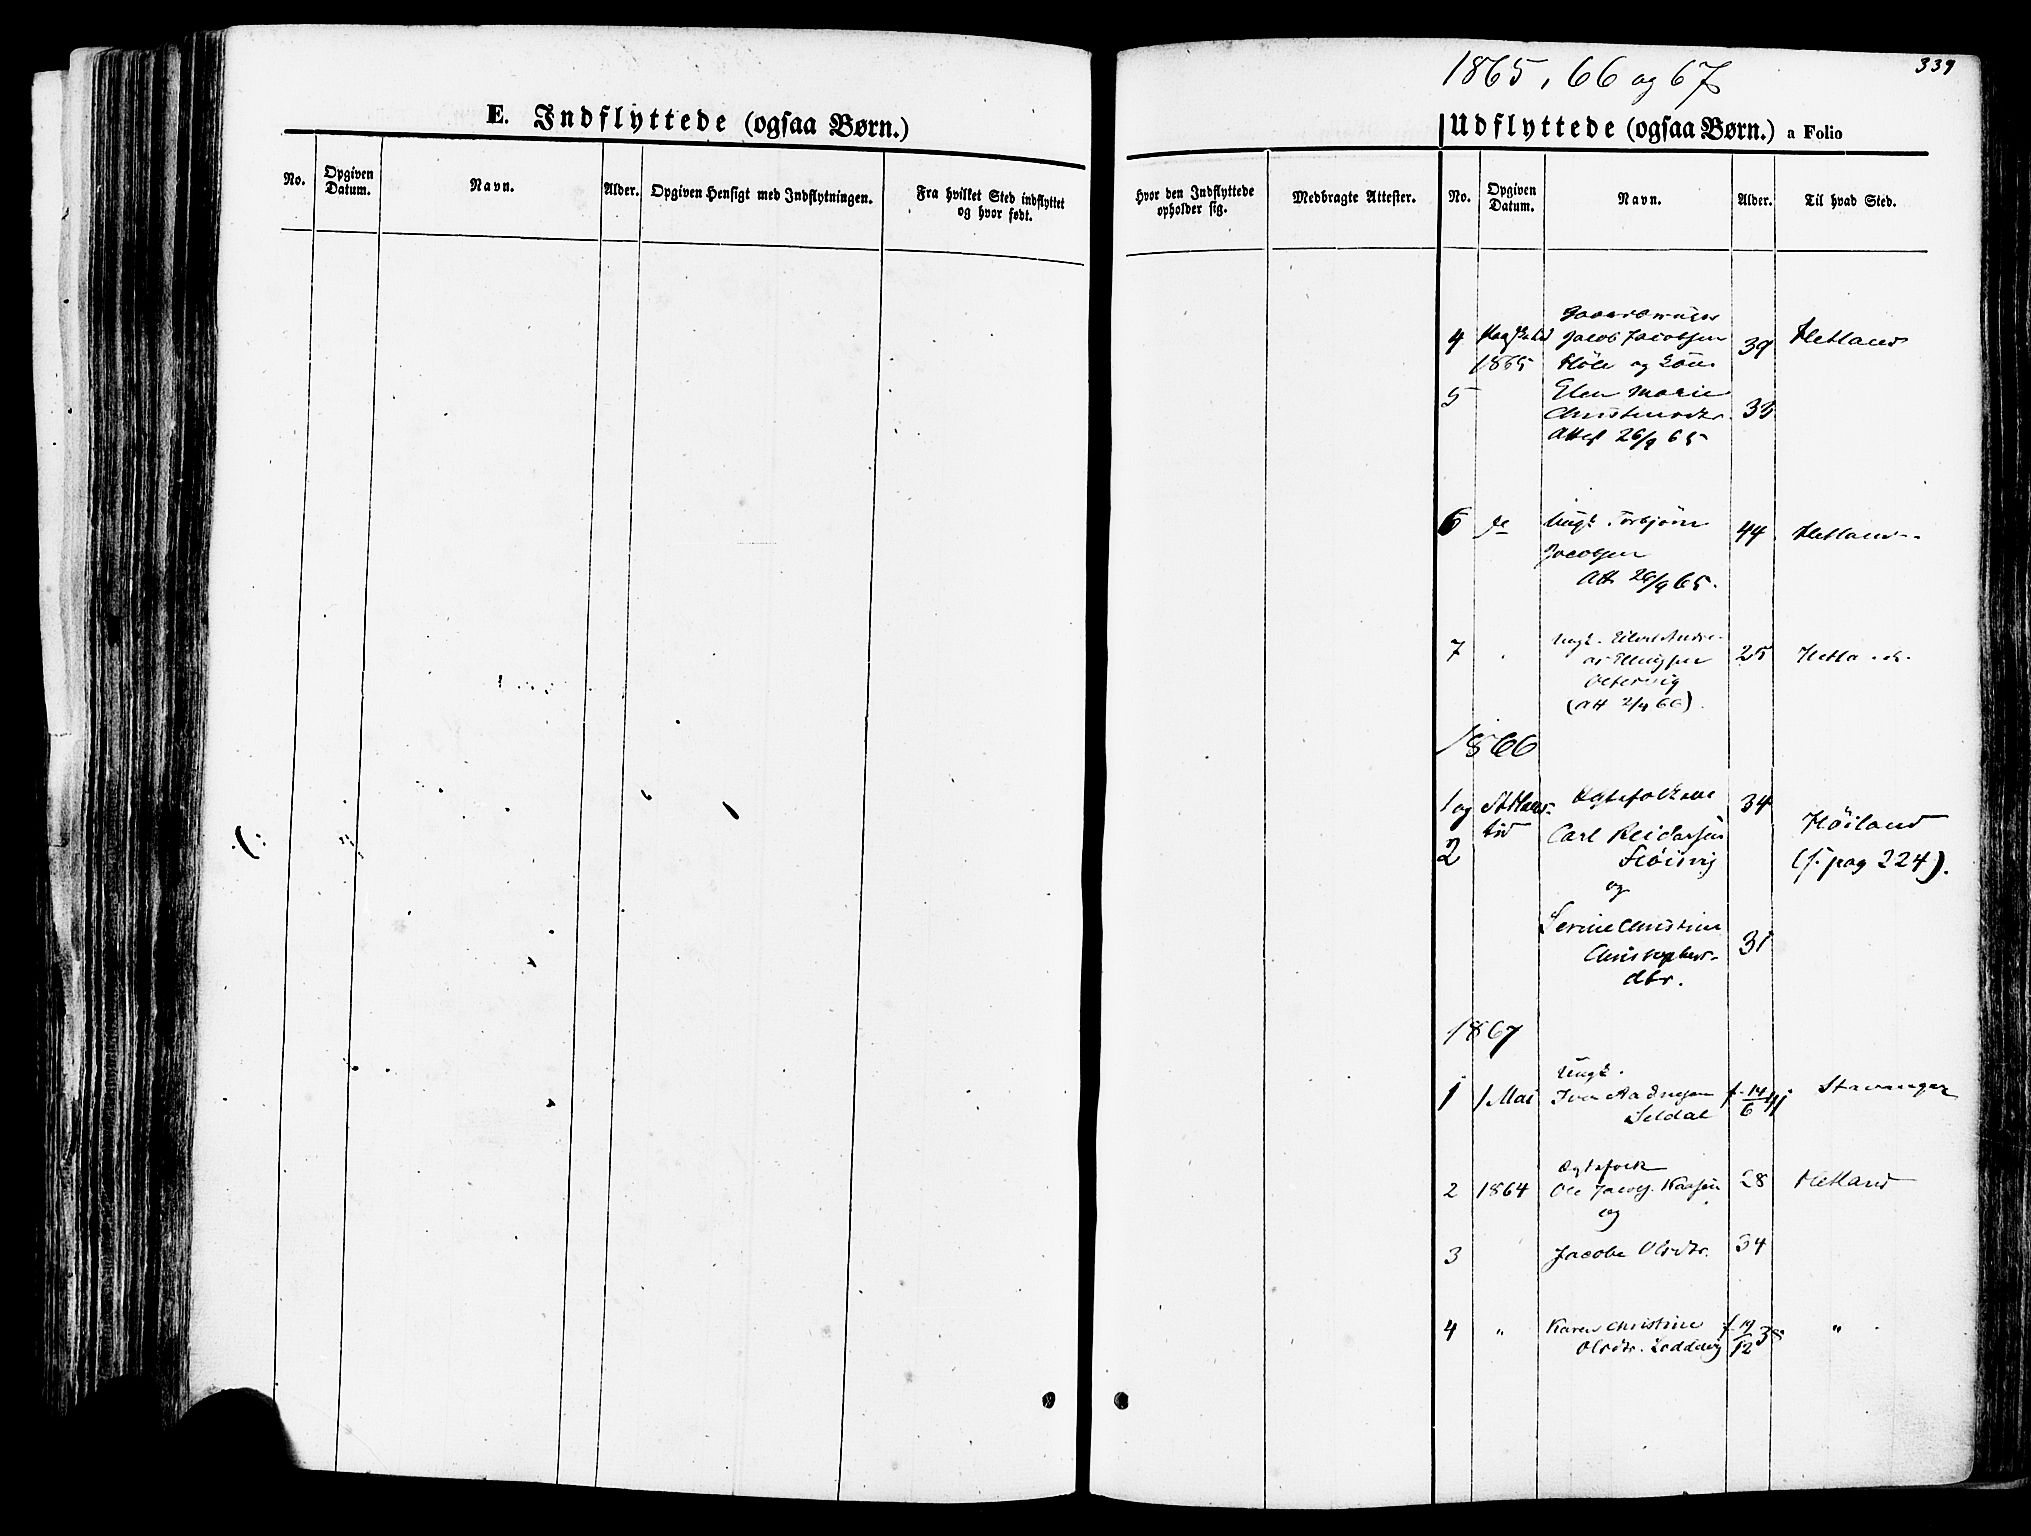 1865, 66 og 67
339
E. Indflyttede (ogsaa Børn.)
Udflyttede (ogsaa Børn.) a Folio
No.
Opgiven Datum.
Navn.
Alder.
Opgiven Hensigt med Indflytningen.
Fra hvilket Sted indflyttet og hvor født.
Hvor den Indflyttede opholder sig.
Medbragte Attester.
No.
Opgiven Datum.
Navn.
Alder.
Til hvad Sted.
4 Jacob Jacobsen 39 Hetland
1865 Høle og
5 Elen Marie
Christensdtr. 33
Attest 26/9 65
6 Ungk. Torbjørn 44 Hetland
Jacobsen
Att. 26/9 65.
7 Ungk. Eilert Andre-
as Ellingsen 25 Hetland.
(Att 2/4 66).
1866
1 og Ægtefolkene 34
2 Carl Reidarsen Høiland
(s. pag 224).
og
Serine Christine
Christophers- 31
dtr.
1867
Ungk.
1 1 Mai Iver Aadnesen f. 14/6 41 Stavanger
Seldal
Ægtefolk
2 1864 Ole Jacobs. 28 Hetland
og
3 Jacobe Olsdtr. 34
4 " Karen Christine f. 19/12 38 "
Olsdtr.